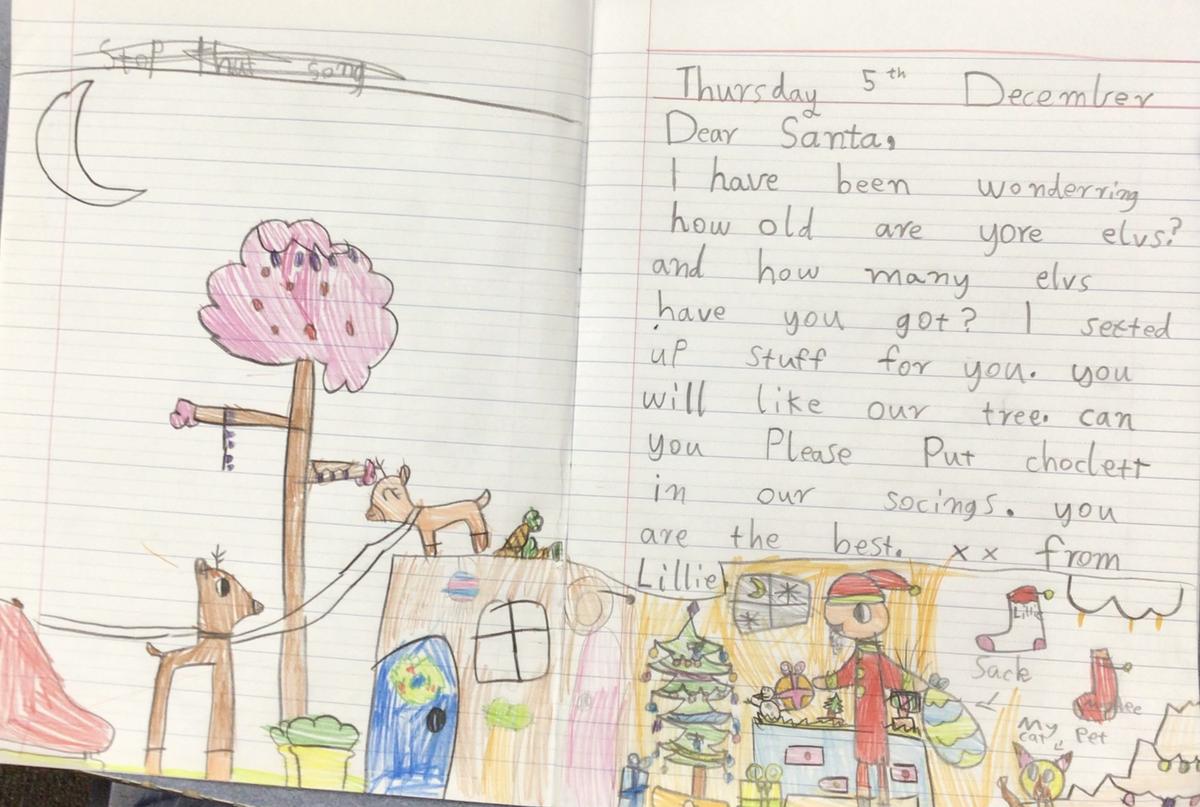 Stop that song
Thursday 5th December
Dear Santa,
I have been wonderring
how old are yore elvs?
and how many elvs
have you got? I setted
up stuff for you. you
will like our tree. can
you Please Put choclett
in our socings. you
are the best. x x from
Lillie
Lillie
Sack
My
cat
Pet